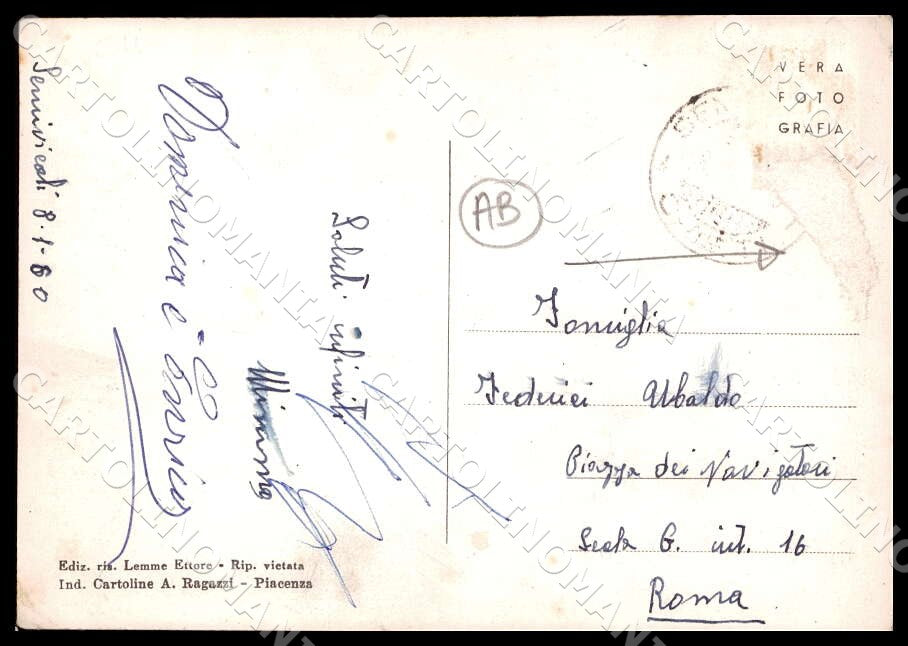 8-1-60
Saluti infiniti
Mimmo
Domenica e Enrico
Ediz. ris. Lemme Ettore - Rip. vietata
Ind. Cartoline A. Ragazzi - Piacenza
VERA
FOTO
GRAFIA
AB
Famiglia
Federici Ubaldo
Piazza dei Navigatori
Scala G. int. 16
Roma
CARTOLINOMANIA